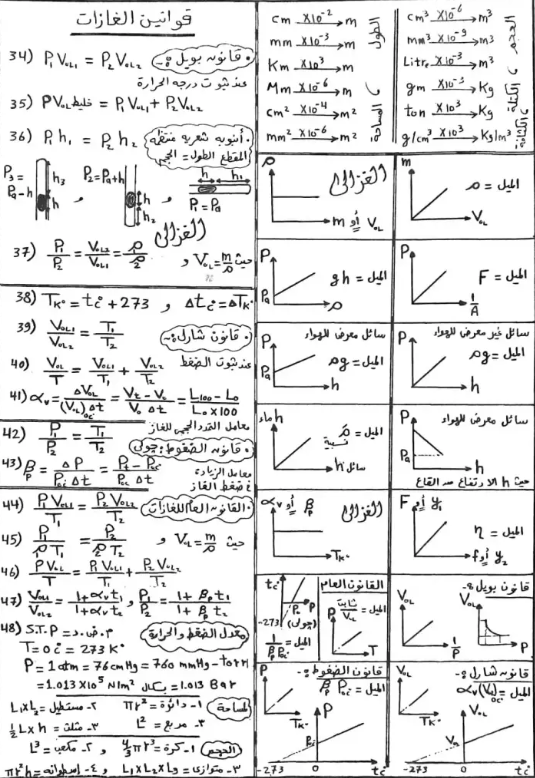 قوانين الغازات
34) P₁ VoL₁ = P₂ VoL₂
• قانون بويل :-
عند ثبوت درجه الحرارة
35) P VoL خليط = P₁ VoL₁ + P₂ VoL₂
36) P₁ h₁ = P₂ h₂
• أنبوبه شعريه منتظمه المقطع الطول = الحجم
P₃ = Pa - h
h₃
h
P₂ = Pa + h
h
h₂
h
h₁
P₁ = Pa
الغزالى
37) P₁/P₂ = VoL₂/VoL₁ = ρ₁/ρ₂
حيث VoL = m/ρ و
38) TK° = t°c + 273 و Δt°c = ΔTK°
39) VoL₁/VoL₂ = T₁/T₂
• قانون شارل :-
عند ثبوت الضغط
40) VoL/T = VoL₁/T₁ + VoL₂/T₂
41) αv = ΔVoL/(VoL)₀ Δt = Vt - V₀/V₀ Δt = L100 - L₀/L₀ x 100
معامل التمدد الحجمى للغاز
42) P₁/P₂ = T₁/T₂
• قانون الضغوط : چولى
43) βp = ΔP/P₀c Δt = Pt - P₀c/P₀c Δt
معامل الزيادة فى ضغط الغاز
44) P₁ VoL₁/T₁ = P₂ VoL₂/T₂
• القانون العام للغازات
45) P₁/ρ₁T₁ = P₂/ρ₂T₂
و VoL = m/ρ حيث
46) P VoL/T = P₁ VoL₁/T₁ + P₂ VoL₂/T₂
47) VoL₁/VoL₂ = 1+αv t₁/1+αv t₂ و P₁/P₂ = 1+βp t₁/1+βp t₂
48) S.T.P = م.ض.د
معدل الضغط والحرارة
T = 0°c = 273 K°
P = 1 atm = 76 cm Hg = 760 mm Hg - torr
= 1.013 X10⁵ N/m² بسكال = 1.013 Bar
المساحة
١- دائرة = πr²
٢- مستطيل = L₁xL₂
٣- مثلث = ½ L x h
٣- مربع = L²
الحجم
١- كرة = 4/3 πr³
٢- مكعب = L³
٣- متوازى = L₁xL₂xL₃
٤- إسطوانه = πr²h
الطول
cm X10⁻² m
mm X10⁻³ m
Km X10³ m
Mm X10⁻⁶ m
و المساحة
cm² X10⁻⁴ m²
mm² X10⁻⁶ m²
الحجم
cm³ X10⁻⁶ m³
mm³ X10⁻⁹ m³
Litre X10⁻³ m³
و الكتلة
gm X10⁻³ Kg
ton X10³ Kg
و الكثافة
g/cm³ X10³ Kg/m³
ρ
الغزالى
m أو VoL
m
الميل = ρ
VoL
P
Pa
الميل = gh
ρ
P
الميل = F
1/A
سائل معرض للهواء
P
Pa
الميل = ρg
h
سائل غير معرض للهواء
P
الميل = ρg
h
h ماء
الميل = ρ نسبية
h سائل
سائل معرض للهواء
P
Pa
h
حيث h الارتفاع من القاع
αv أو βp
الغزالى
TK°
F أو y₁
الميل = η
f أو y₂
t°c
P₀
P
-273
(چولى)
الميل = 1/βp P₀c
القانون العام
P
الميل = ثابت/VoL
T
قانون بويل :-
VoL
1/P
VoL
P
قانون الضغوط :-
الميل = βp P₀c
P
TK°
P
P₀
-273
0
t°c
قانون شارل :-
الميل = αv(VoL)₀c
VoL
TK°
VoL
VoL₀
-273
0
t°c